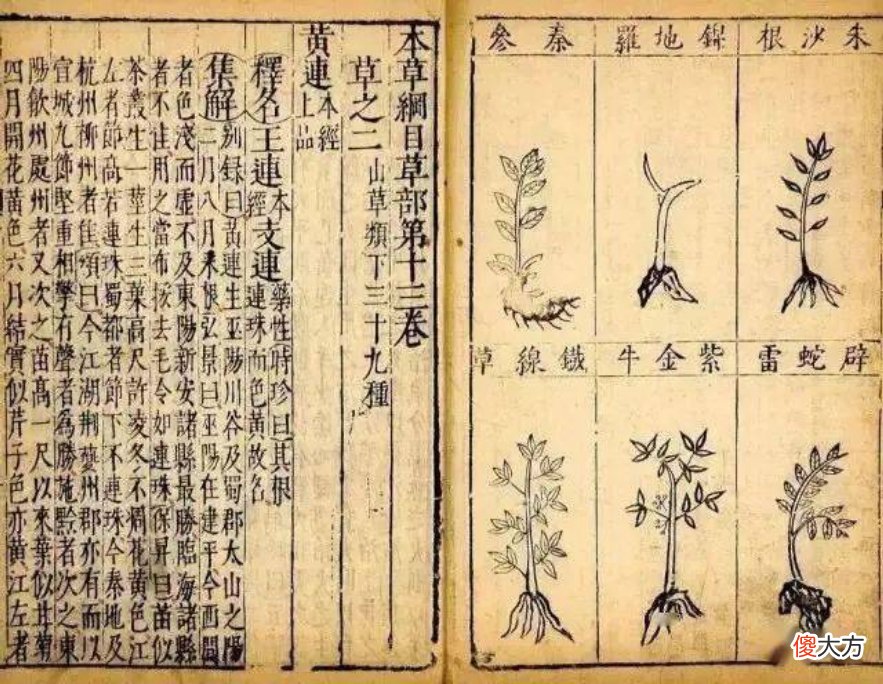 朱沙根
錦地羅
秦參
辟蛇雷
紫金牛
鐵線草
本草綱目草部第十三卷
草之二 山草類下三十九種
黃連 本經上品
釋名 王連 本經 支連 藥性時珍曰其根連珠而色黃故名
集解 別錄曰黃連生巫陽川谷及蜀郡太山之陽
二月八月采根弘景曰巫陽在建平今西間
者色淺而虛不及東陽新安諸縣最勝臨海諸縣
者不佳用之當布挼去毛令如連珠保昇曰苗似
茶叢生一莖生三葉高尺許凌冬不凋花黃色江
左者節高若連珠蜀都者節下不連珠今秦地及
杭州柳州者佳頌曰今江湖荊夔州郡亦有而以
宣城九節堅重相擊有聲者爲勝施黔者次之東
陽歙州處州者又次之苗高一尺以來葉似甘菊
四月開花黃色六月結實似芹子色亦黃江左者
傻大方